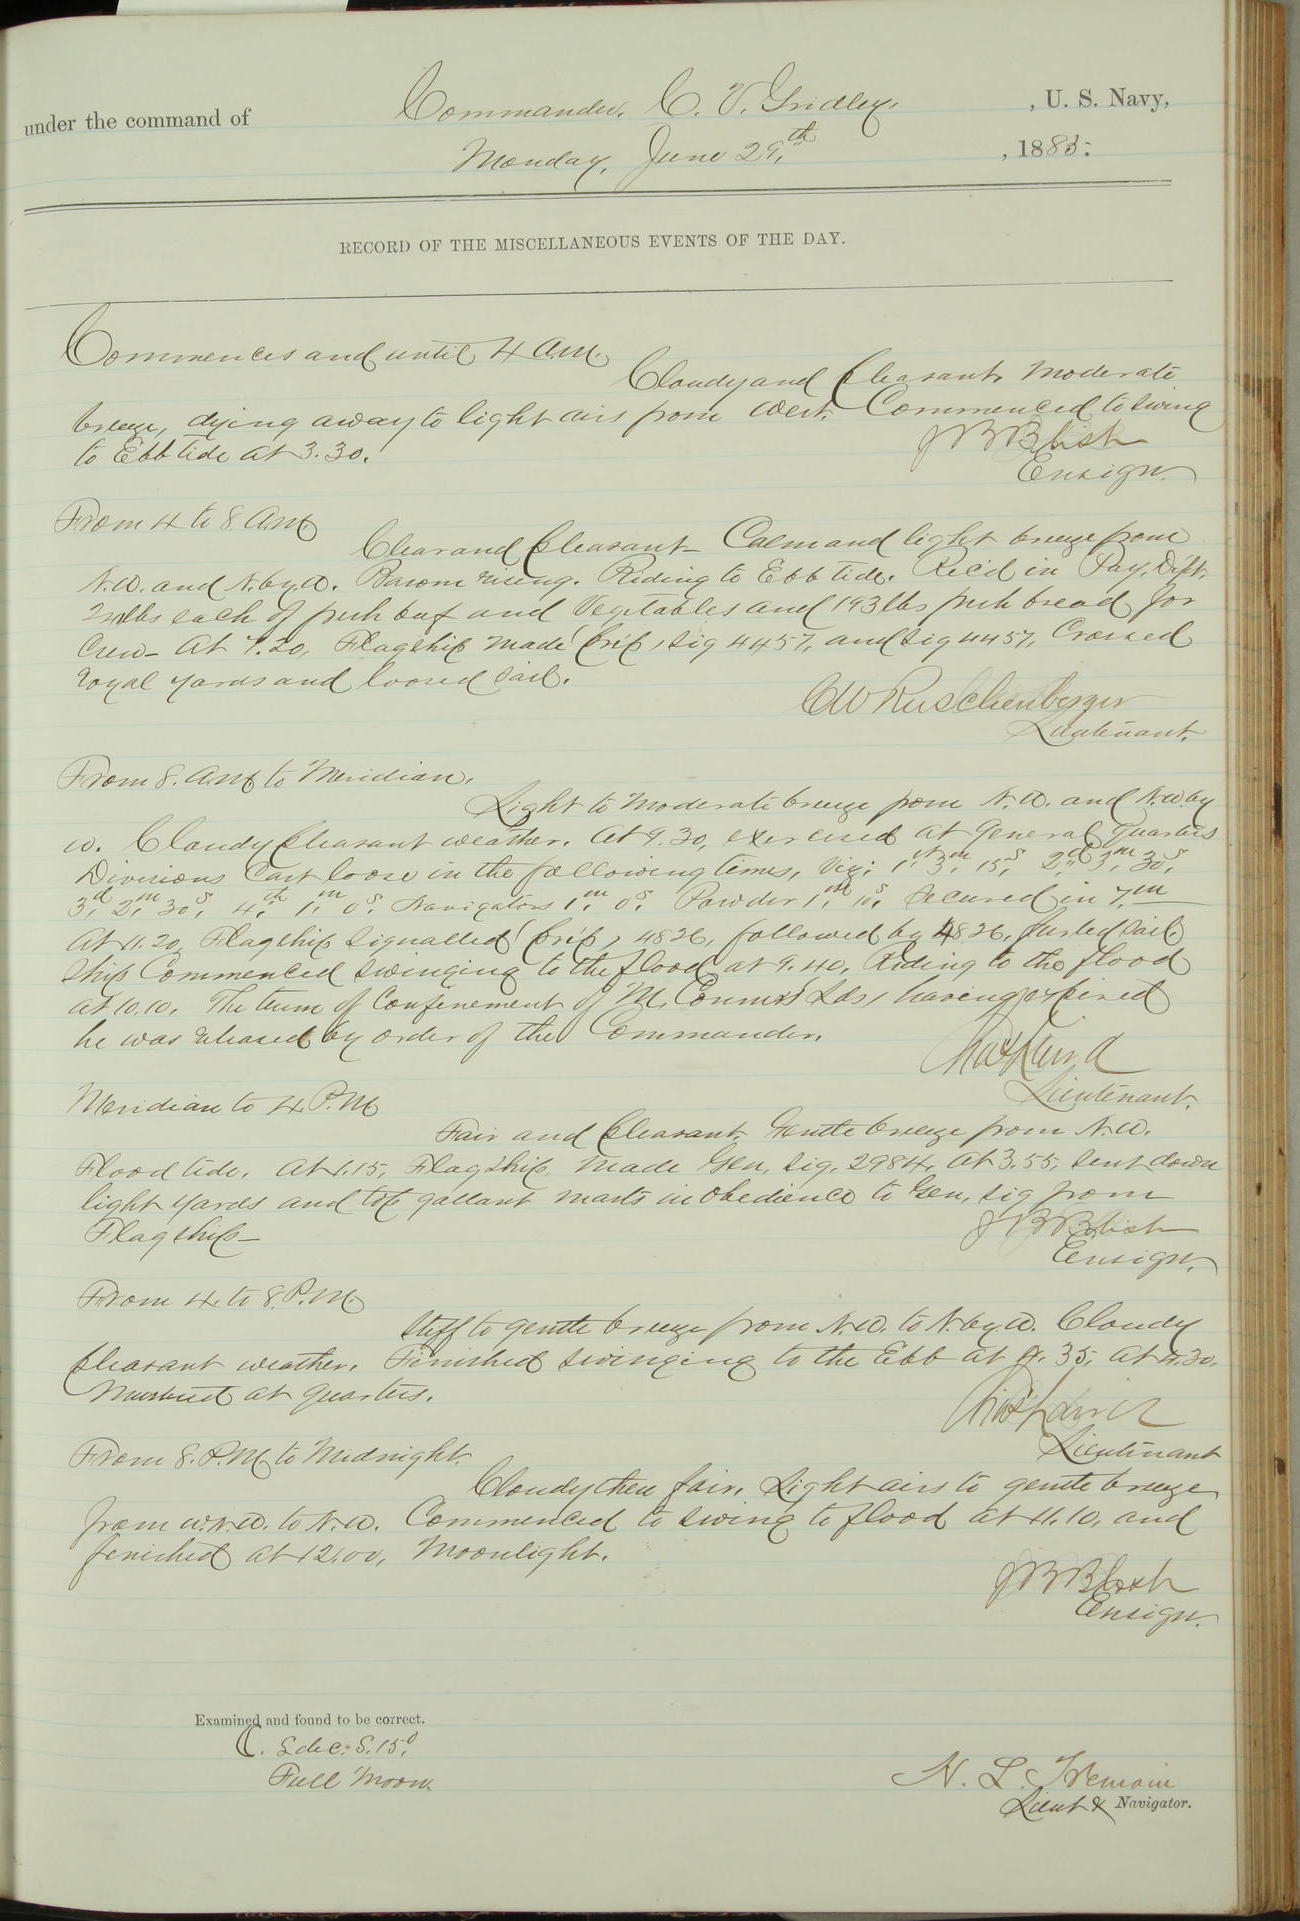 under the command of Commander, C. V. Gridley, , U. S. Navy,
Monday, June 29,th , 1885:
RECORD OF THE MISCELLANEOUS EVENTS OF THE DAY.
Commences and until 4 A.M.
Cloudy and pleasant. Moderate
breeze, dying away to light airs from West. Commenced to swing
to Ebb tide at 3.30.
J B Blish
Ensign.
From 4 to 8. A.M.
Clear and pleasant - Calm and light breeze from
N.W. and N. by W. Barom rising. Riding to Ebb tide. Rec'd in Pay. Dept.
lbs each of fresh beef and Vegetables and 193 lbs fresh bread for
Crew - At 7.20, Flagship made prep, sig 4457, and sig 4457, Crossed
royal yards and loosed sail.
C W Ruschenberger
Lieutenant.
From 8. A.M. to Meridian.
Light to moderate breeze from N.W. and N.W. by
W. Cloudy pleasant weather. At 9.30, exercised at General Quarters
Divisions Cast loose in the following times, Viz: 1st 3,m 15,s 2,d 3,m 30,s
3,d 2,m 30s, 4,th 1,m 0s. Navigators 1m. 0s. Powder 1m. 10s. Secured in 7,m
At 11.20, Flagship signalled prep, 4826, followed by 4826, furled sail.
Ship Commenced swinging to the flood at 9.40, Riding to the flood
at 10.10. The term of Confinement of M. Connors Lds, having expired
he was released by order of the Commander.
Chas Laird
Lieutenant.
Meridian to 4. P.M.
Fair and pleasant. Gentle breeze from N.W.
Flood tide. At 1.15, Flagship made Gen, Sig, 2984, at 3.55, sent down
light yards and top gallant masts in obedience to Gen, sig from
Flagship -
J B Blish
Ensign.
From 4. to 8. P.M.
Stiff to gentle breeze from N.W. to N. by W. Cloudy
pleasant weather. Finished swinging to the Ebb at 4.35, at 4.30,
Mustered at quarters.
Chas Laird
Lieutenant
From 8. P.M. to Midnight.
Cloudy then fair. Light airs to gentle breeze
from W.N.W. to N.W. Commenced to swing to flood at 11.10, and
finished at 12.00, Moonlight.
J B Blish
Ensign.
Examined and found to be correct.
Full Moon.
N. L. Tremain
Lieut & Navigator.